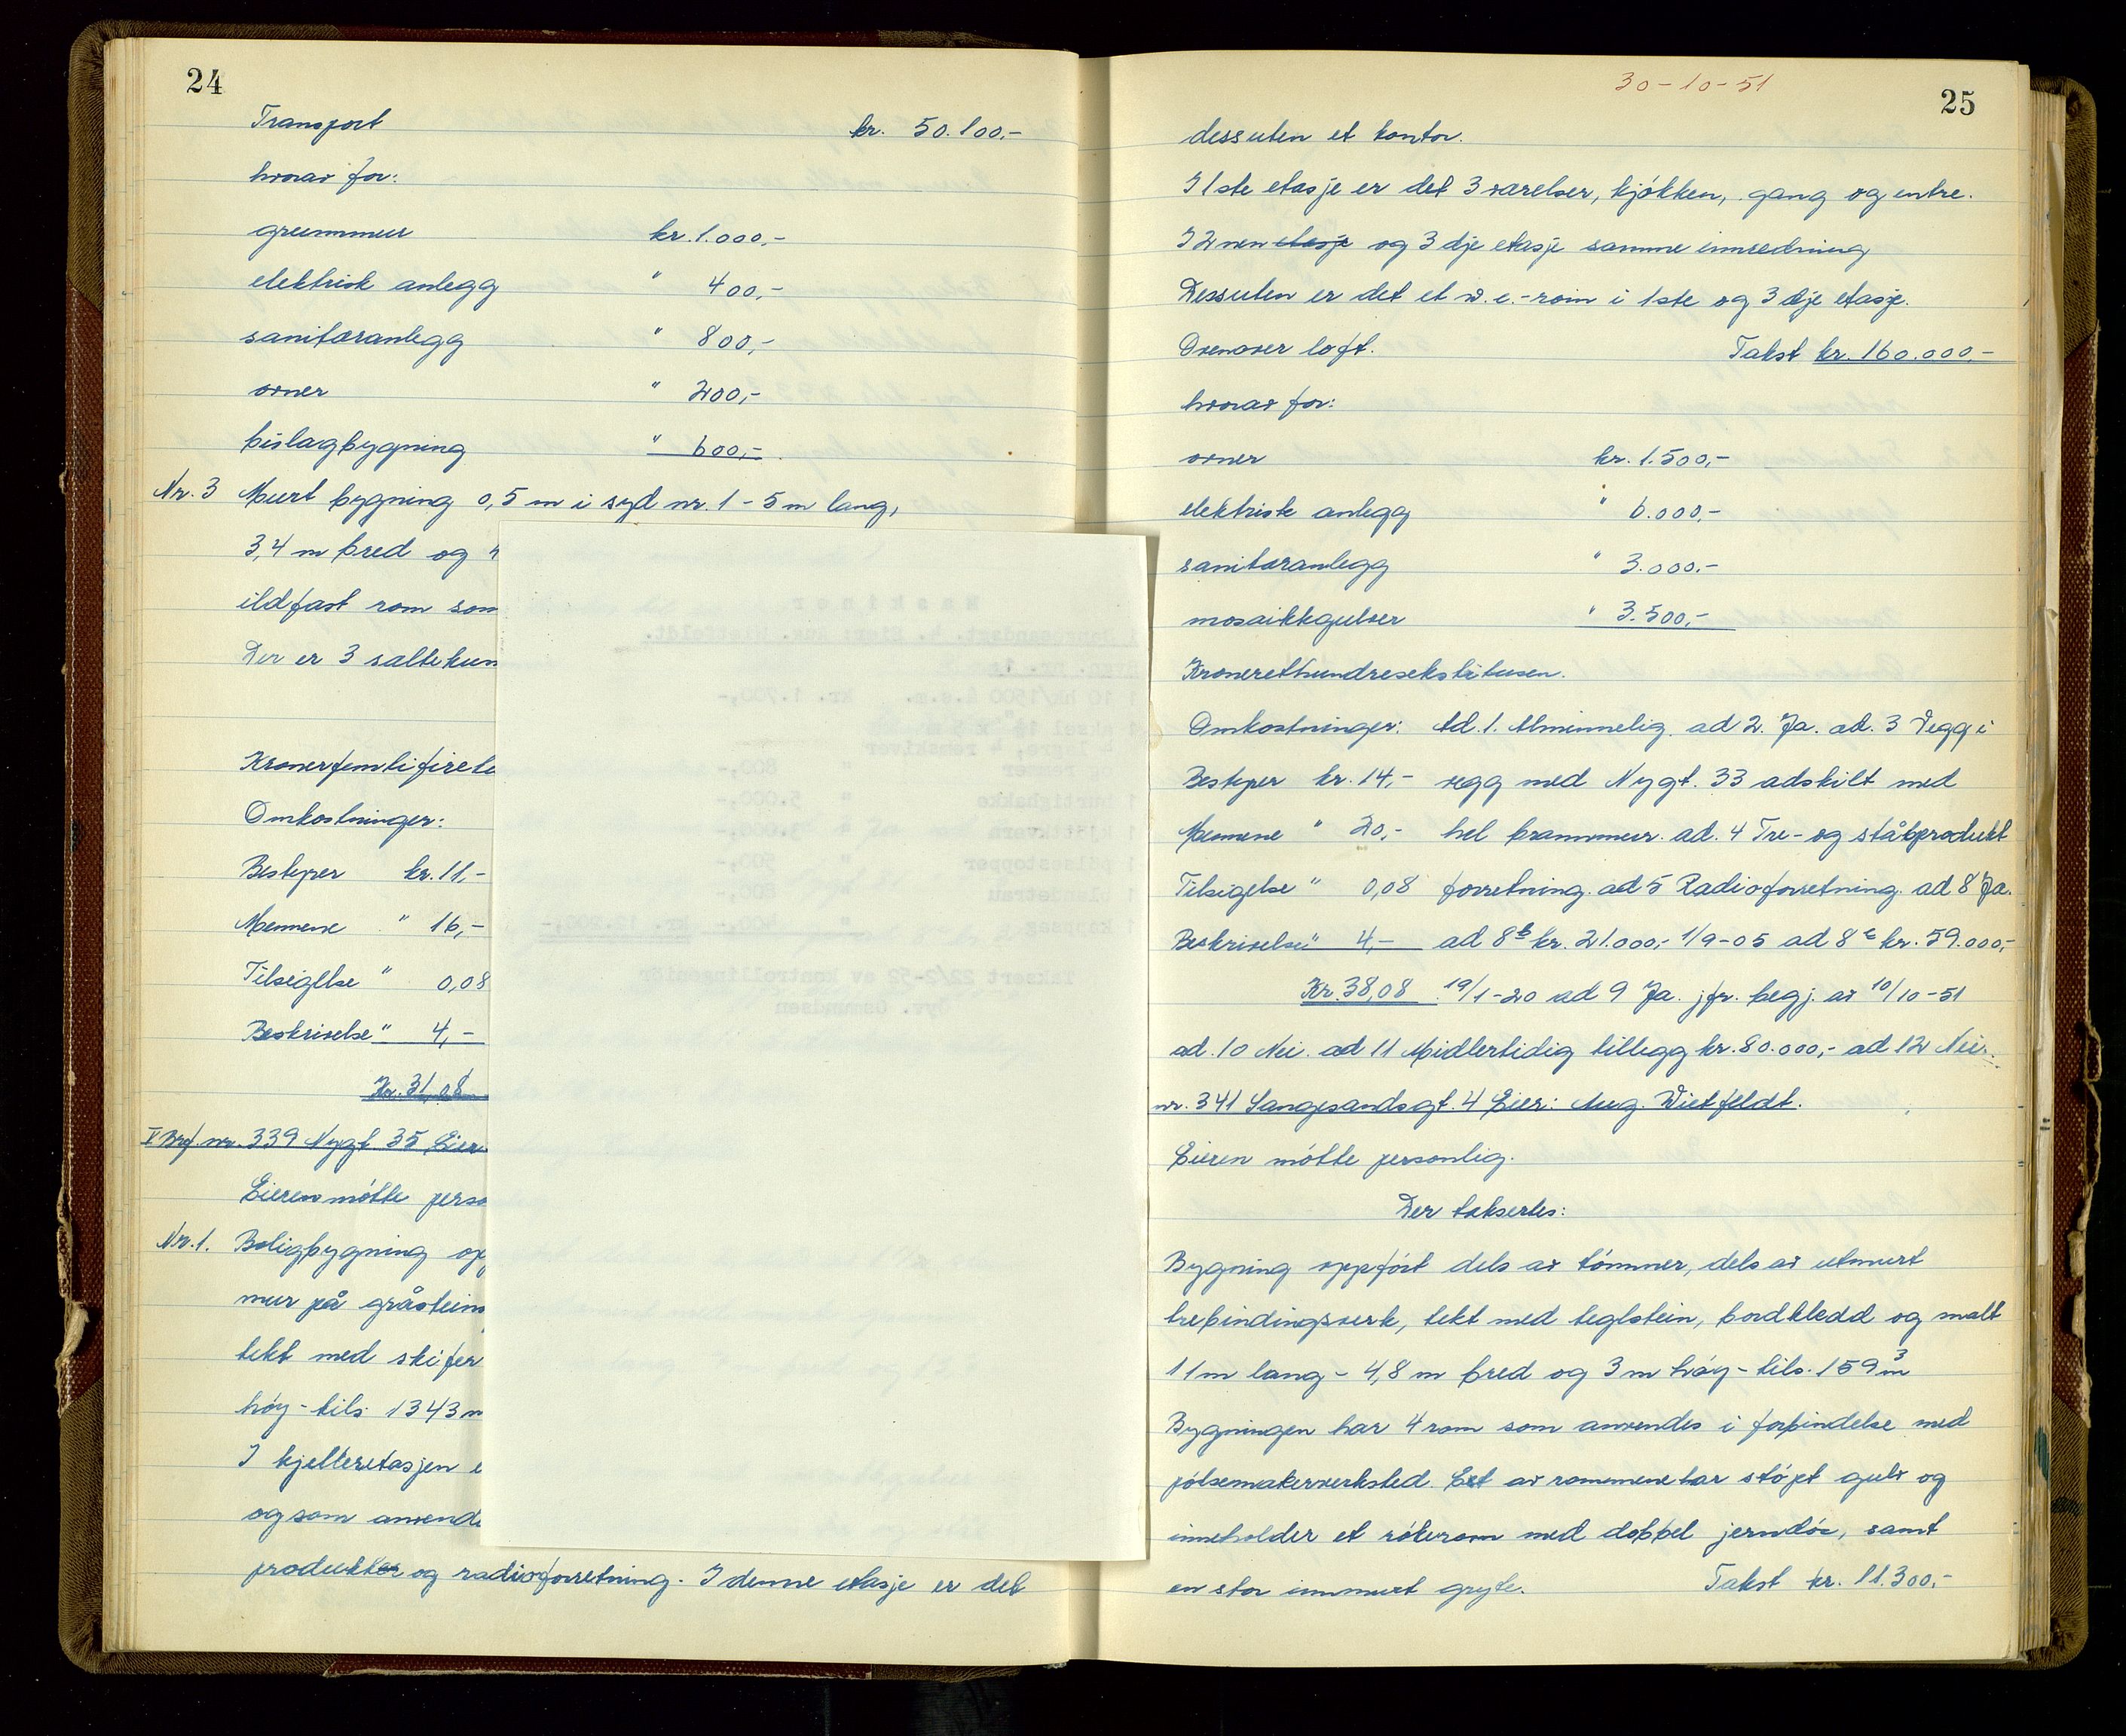 24
Transport kr. 50.100,-
hvorav for:
grunnmur kr. 1.000,-
elektrisk anlegg " 400,-
sanitæranlegg " 800,-
ovner " 200,-
bislagbygning " 600,-
Nr. 3 Murt bygning 0,5 m i syd nr. 1 - 5 m lang,
3,4 m bred og
ildfast rom som
Der er 3 saltekum
Kronerfemtifire
Omkostninger:
Bestyrer kr. 11,-
Mennene " 16,-
Tilsigelse " 0,08
Beskrivelse " 4,-
Kr. 31,08
V Brf. nr. 339 Nygt. 35 Eier
Eieren møtte perso
Nr. 1. Boligbygning opp
mur på gråsteins
tekt med skifer
høy - tils. 1343 m
I kjelleretasjen e
og som anvende
produkter og radioforretning. I denne etasje er det
30-10-51
25
dessuten et kontor.
I 1ste etasje er det 3 værelser, kjøkken, gang og entre.
I 2nen etasje og 3dje etasje samme innredning
Dessuten er det et w.c.-rom i 1ste og 3dje etasje.
Ovenover loft. Takst kr. 160.000,-
hvorav for:
ovner kr. 1.500,-
elektrisk anlegg " 6.000,-
sanitæranlegg " 3.000,-
mosaikkgulver " 3.500,-
Kronerethundresekstitusen.
Omkostninger: Ad. 1. Alminnelig. ad 2. Ja. ad. 3 Vegg i
Bestyrer kr. 14,- vegg med Nygt. 33 adskilt med
Mennene " 20,- hel brannmur. ad. 4 Tre- og stålprodukt
Tilsigelse " 0,08 forretning. ad 5 Radioforretning. ad 8 Ja.
Beskrivelse " 4,- ad 8 b kr. 21.000,- 1/9-05 ad 8 c kr. 59.000,-
Kr. 38,08 19/1-20 ad 9 Ja. jfr. begj. av 10/10-51
ad. 10 Nei. ad 11 Midlertidig tillegg kr. 80.000,- ad 12 Nei.
nr. 341 Langesandsgt. 4 Eier: Aug. Wietfeldt.
Eieren møtte personlig.
Der takseres:
Bygning oppført dels av tømmer, dels av utmurt
trebindingsverk, tekt med teglstein, bordkledd og malt
11 m lang - 4,8 m bred og 3 m høy - tils. 159 m³
Bygningen har 4 rom som anvendes i forbindelse med
pølsemakerverksted. Et av rommene har støpt gulv og
inneholder et røkerom med dobbel jerndør, samt
en stor innmurt gryte. Takst kr. 11.300,-